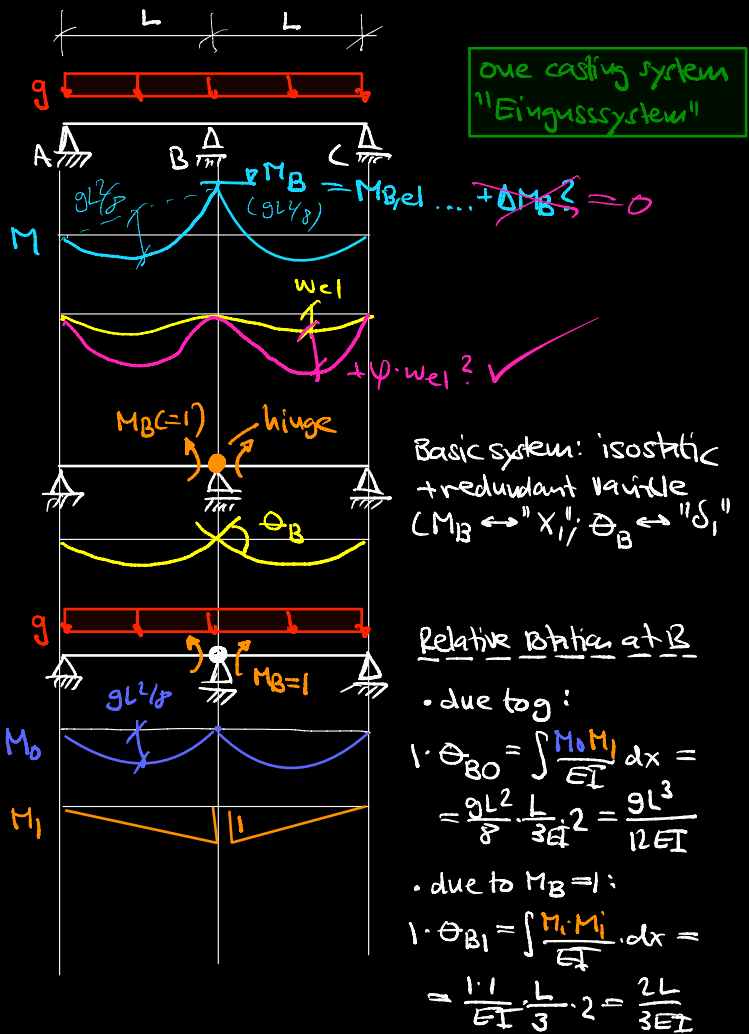 L L
one casting system
"Eingusssystem"
g
A B C
gL²/8
M_B = M_B,el .... + ΔM_B? = 0
(gL²/8)
M
w_el
+ φ·w_el? ✓
M_B(=1) hinge
Basic system: isostatic
+ redundant variable
(M_B ↔ "X₁"; θ_B ↔ "δ₁"
θ_B
g
M_B=1
Relative Rotation at B
• due to g:
gL²/8
M₀
1·θ_B0 = ∫ M₀M₁/EI dx =
= gL²/8 · L/3EI · 2 = gL³/12EI
M₁
1
• due to M_B=1:
1·θ_B1 = ∫ M₁·M₁/EI · dx =
= 1·1/EI · L/3 · 2 = 2L/3EI